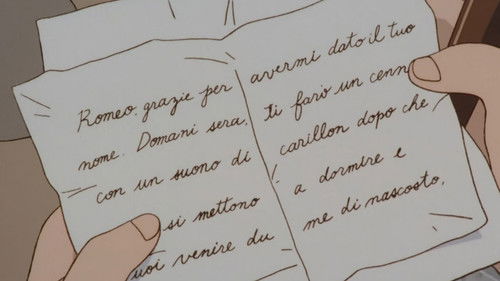 Romeo. grazie per avermi dato il tuo
nome. Domani sera, ti farò un cenn
con un suono di carillon dopo che
si mettono a dormire e
uoi venire du me di nascosto.